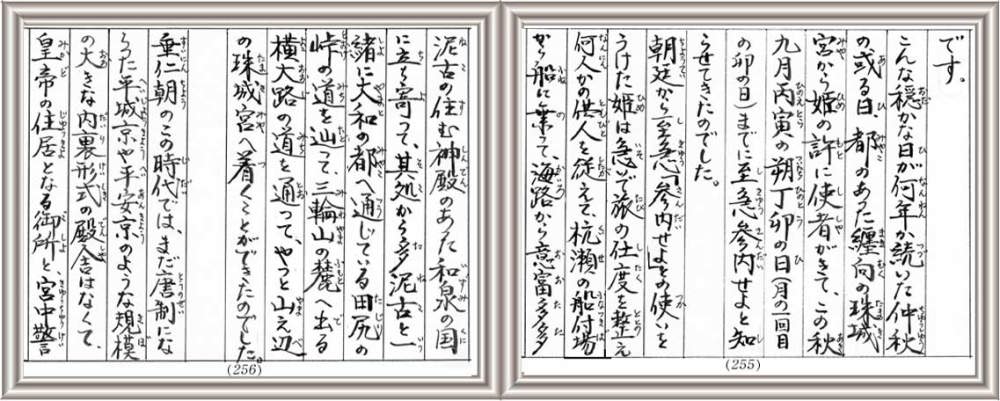 です。
こんな穏かな日が何年か続いた仲秋
の或る日、都のあった纏向の珠城
宮から姫の許に使者がきて、この秋
九月丙寅の朔丁卯の日(月の一回目
の卯の日)までに至急参内せよと知
らせてきたのでした。
朝廷から至急参内せよとの使いを
うけた姫は急いで旅の仕度を整え
何人かの供人を従えて、杭瀬の船付場
から船に乗って、海路から意富多多
(255)
泥古の住む神殿のあった和泉の国
に立ち寄って、其処から多多泥古と一
緒に大和の都へ通じている田尻の
峠の道を辿って、三輪山の麓へ出る
横大路の道を通って、やっと山之辺
の珠城宮へ着くことができたのでした。
垂仁朝のこの時代では、まだ唐制にな
らった平城京や平安京のような規模
の大きな内裏形式の殿舎はなくて、
皇帝の住居となる御所と、宮中警
(256)